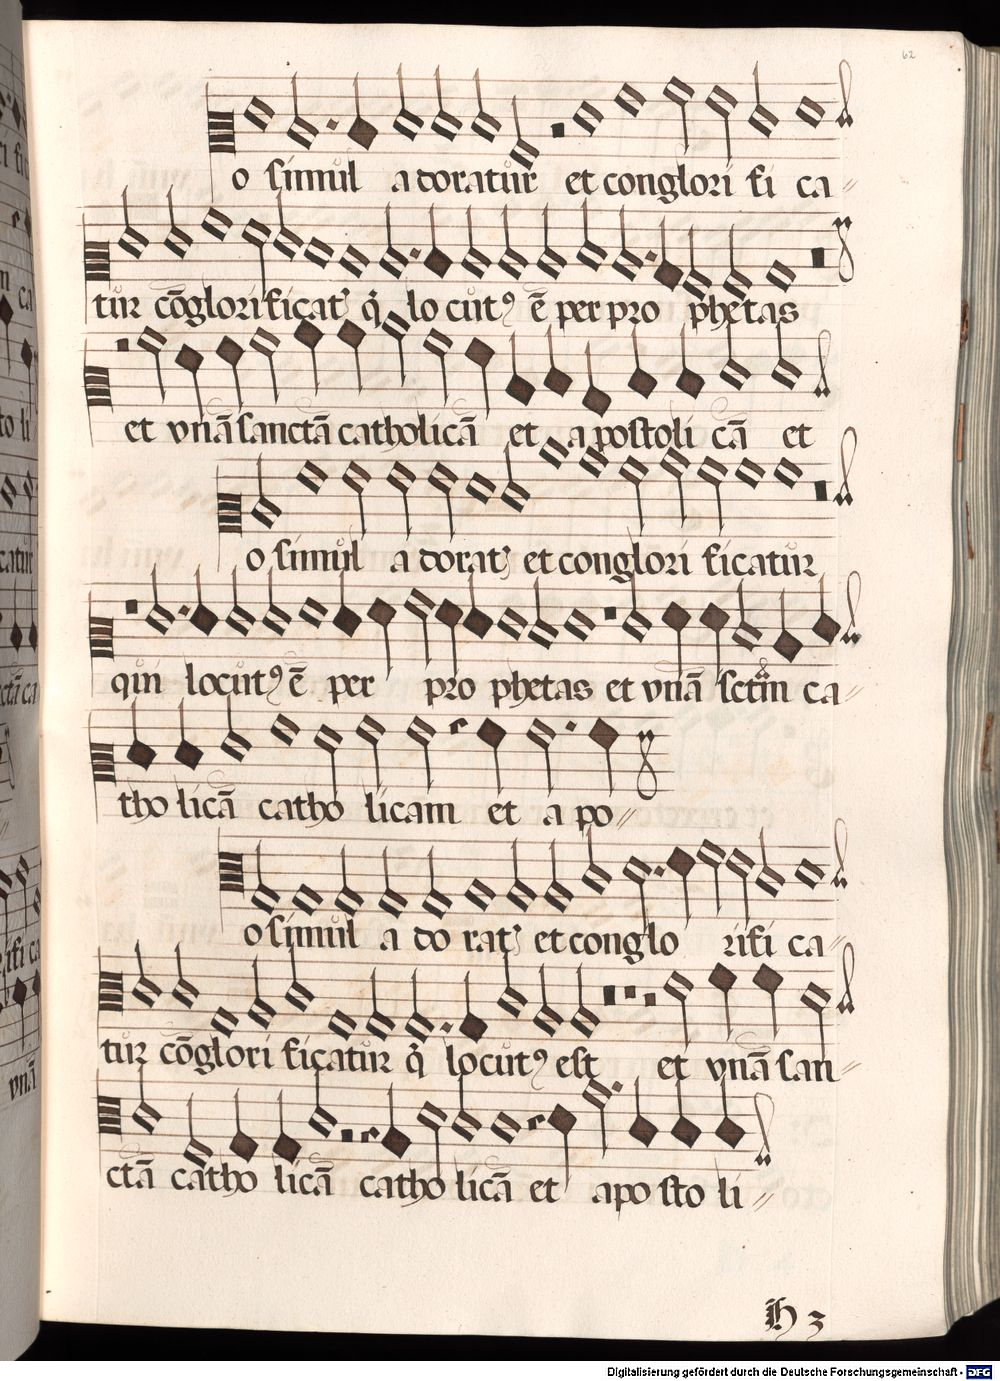 62
o simul adoratur et conglori fi ca〃
tur cōglorificat᷒ q̇ locutꝰ ē per pro phetas
et vnā sanctā catholicā et apostoli cā et
o simul adorat᷒ et conglori ficatur
qui locutꝰ ē per pro phetas et vnā sctam ca〃
tho licā catho licam et apo〃
o simul a do rat᷒ et conglo rifi ca〃
tur cōglori ficatur q̇ locutꝰ est et vnā san〃
ctā catho licā catho licā et aposto li〃
H 3
Digitalisierung gefördert durch die Deutsche Forschungsgemeinschaft - DFG